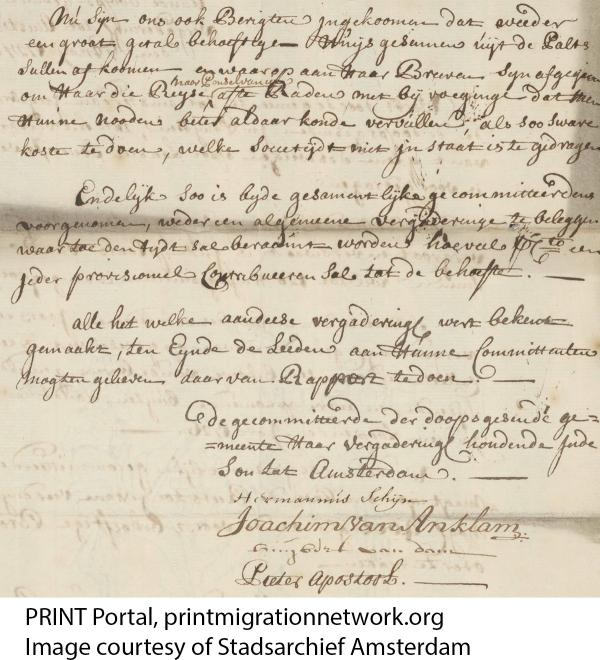 Nu Syn ons ook Berigten Jngekoomen dat wéeder
een groot getal behoeftige Huijsgesinnen uijt de Palts
Sullen af koomen en waarop aan Haar Brieven Syn afgegaen
naar Penselvania
om Haar die Reyse af te Raaden met by voeginge dat
Hunne Nooden beter aldaar konde vervullen, als soo sware
koste te doen, welke Societydt niet jn staat is te gedragen
Endelijk Soo is byde gesamentlyke gecommitteerdens
voorgenomen, weder een algemeene vergaderinge te beleggen
waar toe den tydt sal beraamt worden, hoeveel een
jeder provisioneel Contribueeren Sal tot de behoefte.
alle het welke aan deese vergadering wert bekent
gemaakt, ten Eynde de Leeden aan Hunne Committenten
mogten gelieven daar van Rapport te doen.
De gecommitteerde der doopsgesinde ge=
=meente Haar vergadering houdende jnde
Son tot Amsterdam.
Hermannus Schijn
Joachim van Anklam
van dam
Pieter Apostool.
PRINT Portal, printmigrationnetwork.org
Image courtesy of Stadsarchief Amsterdam